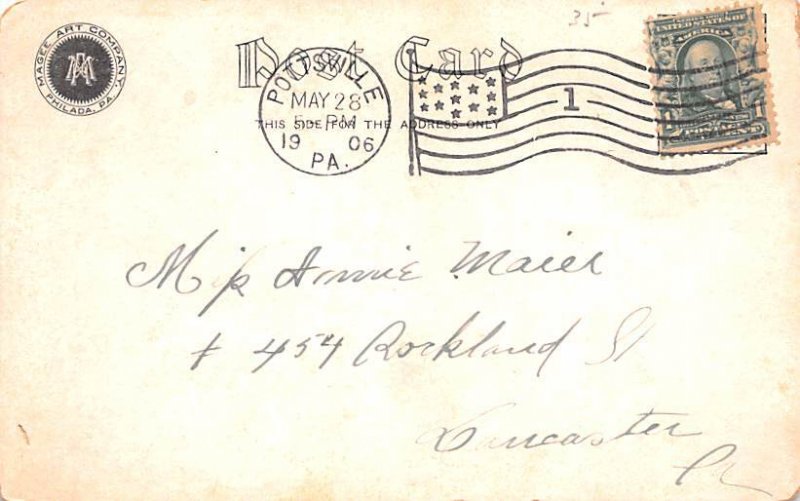 35
MAGEE ART COMPANY.
PHILADA, PA.
Post Card
THIS SIDE FOR THE ADDRESS ONLY
POTTSVILLE
MAY 28
5- PM
1906
PA.
1
UNITED STATES OF
AMERICA
Miss Annie Maier
# 454 Rockland St
Lancaster
Pa